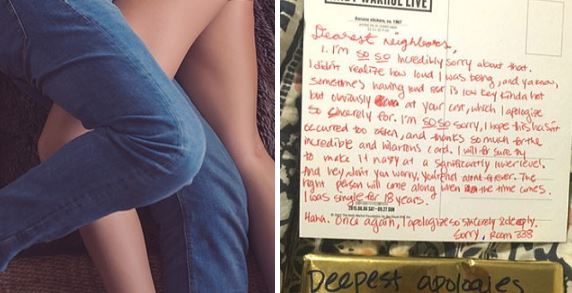 WARHOL LIVE
Dearest neighbors,
1. I'm so so incredibly sorry about that,
I didn't realize how loud I was being, and ya know,
sometimes having loud sex is low key kinda hot
but obviously at your cost, which I apologize
so sincerely for. I'm so so sorry, I hope this hasn't
occurred too often, and thanks so much for the
incredible and hilarious card. I will for sure try
to make it nasty at a significantly lower level.
And hey, don't you worry, you're not alone forever. The
right person will come along when the time comes.
I was single for 18 years.
Haha. Once again, I apologize so sincerely & deeply.
Sorry, Room 338
Deepest apologies